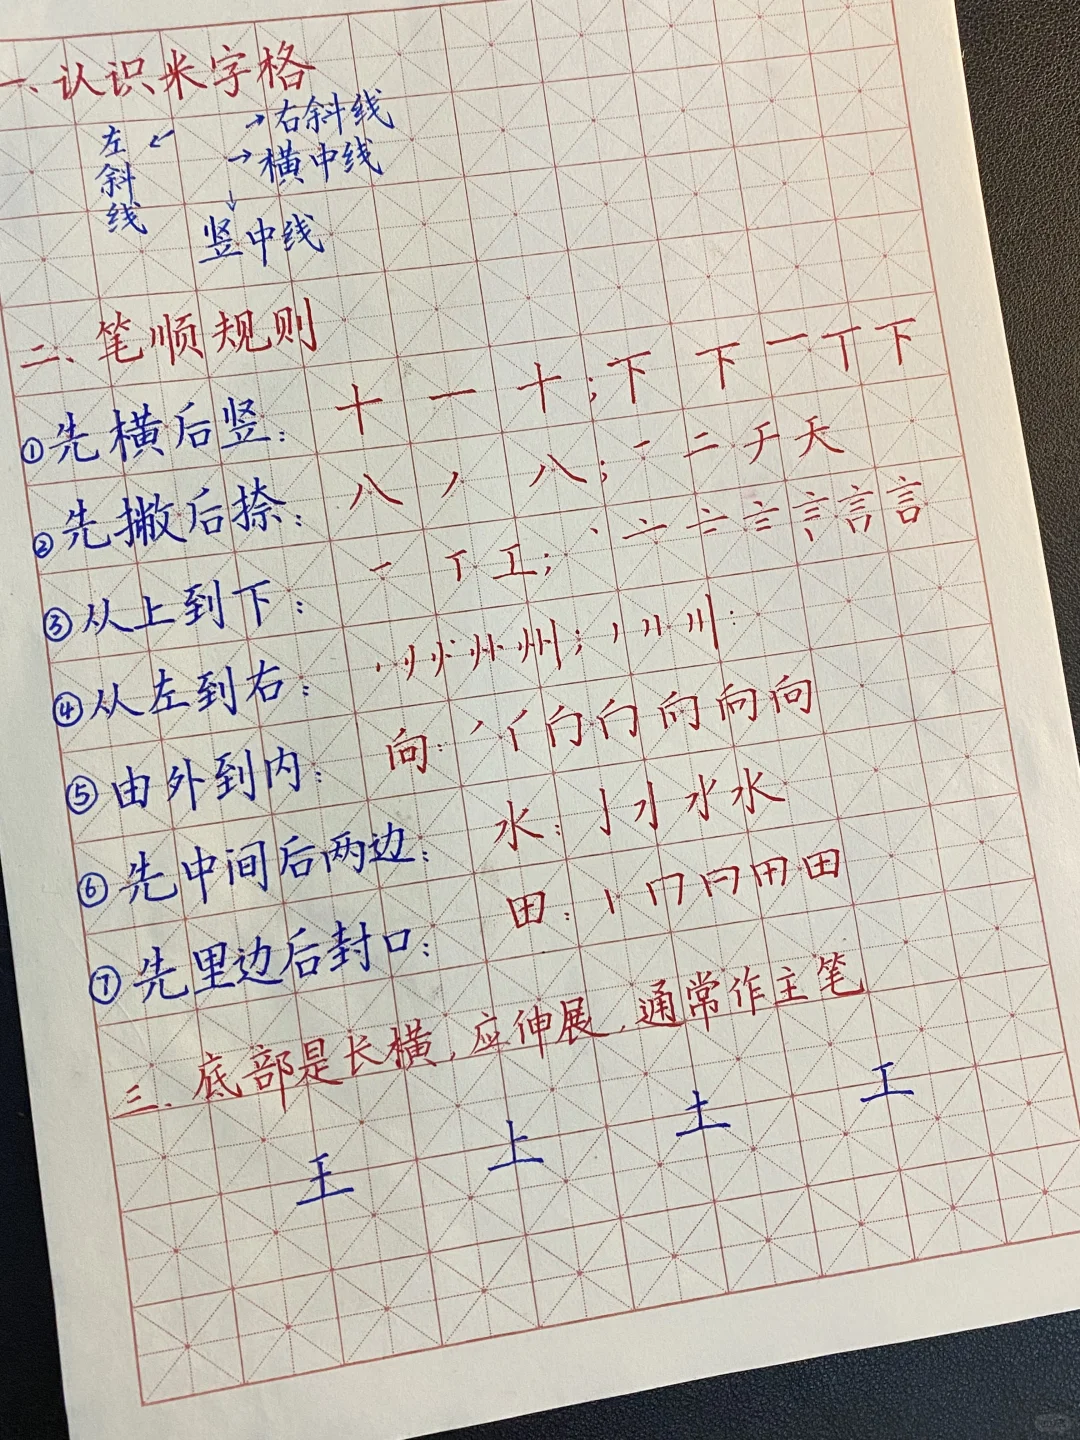 一、认识米字格
左斜线 ← → 右斜线
→ 横中线
↓
竖中线
二、笔顺规则
①先横后竖： 十 一 十；下 下 一 丅 下
②先撇后捺： 八 丿 八；一 二 于 天
③从上到下： 一 丅 工；丶 亠 言 言 言
④从左到右： 州；丿 川：
⑤由外到内： 向：丿 向 向 向
⑥先中间后两边： 水：亅 水 水
⑦先里边后封口： 田：丨 冂 田 田
三、底部是长横，应伸展，通常作主笔
王 上 土 工